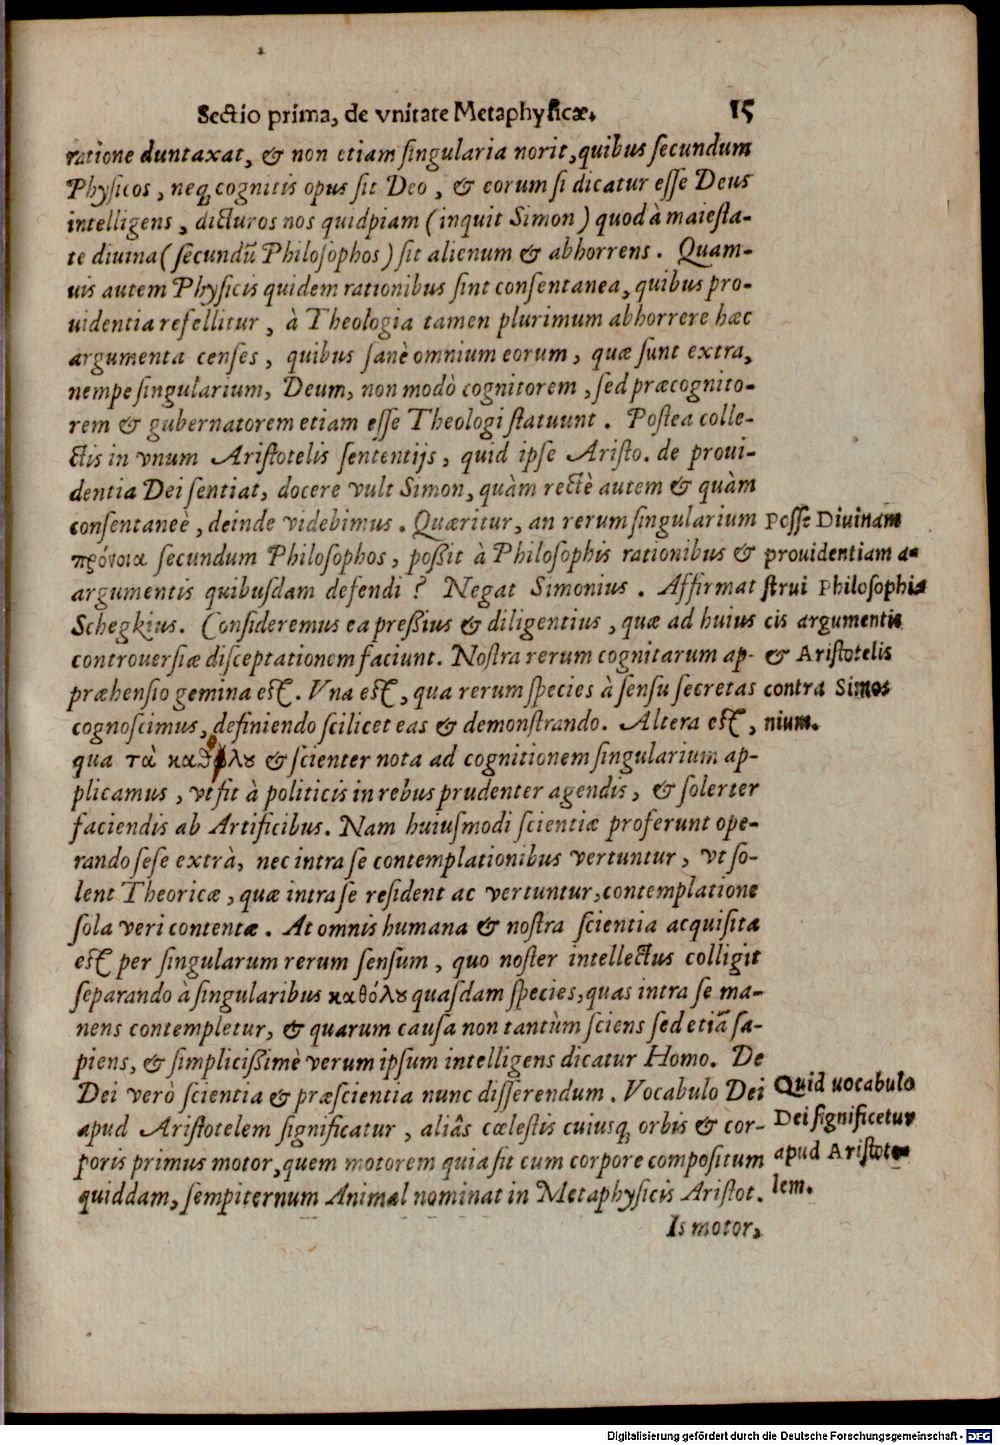 Sectio prima, de vnitate Metaphysicæ. 15
ratione duntaxat, & non etiam singularia norit, quibus secundum
Physicos, neq; cognitis opus sit Deo, & eorum si dicatur esse Deus
intelligens, dicturos nos quidpiam (inquit Simon) quod à maiesta-
te diuina (secundũ Philosophos) sit alienum & abhorrens. Quam-
uis autem Physicis quidem rationibus sint consentanea, quibus pro-
uidentia refellitur, à Theologia tamen plurimum abhorrere hæc
argumenta censes, quibus sanè omnium eorum, quæ sunt extra,
nempe singularium, Deum, non modò cognitorem, sed præcognito-
rem & gubernatorem etiam esse Theologi statuunt. Postea colle-
ctis in vnum Aristotelis sententijs, quid ipse Aristo. de proui-
dentia Dei sentiat, docere vult Simon, quàm rectè autem & quàm
consentaneè, deinde videbimus. Quæritur, an rerum singularium
πρόνοια secundum Philosophos, poßit à Philosophis rationibus &
argumentis quibusdam defendi? Negat Simonius. Affirmat
Schegkius. Consideremus ea preßius & diligentius, quæ ad huius
controuersiæ disceptationem faciunt. Nostra rerum cognitarum ap-
præhensio gemina est. Vna est, qua rerum species à sensu secretas
cognoscimus, definiendo scilicet eas & demonstrando. Altera est,
qua τὰ καθόλου & scienter nota ad cognitionem singularium ap-
plicamus, vt fit à politicis in rebus prudenter agendis, & solerter
faciendis ab Artificibus. Nam huiusmodi scientiæ proferunt ope-
rando sese extrà, nec intra se contemplationibus vertuntur, vt so-
lent Theoricæ, quæ intra se resident ac vertuntur, contemplatione
sola veri contentæ. At omnis humana & nostra scientia acquisita
est per singularum rerum sensum, quo noster intellectus colligit
separando à singularibus καθόλου quasdam species, quas intra se ma-
nens contempletur, & quarum causa non tantùm sciens sed etiã sa-
piens, & simplicißimè verum ipsum intelligens dicatur Homo. De
Dei verò scientia & præscientia nunc disserendum. Vocabulo Dei
apud Aristotelem significatur, aliâs cœlestis cuiusq; orbis & cor-
poris primus motor, quem motorem quia fit cum corpore compositum
quiddam, sempiternum Animal nominat in Metaphysicis Aristot.
Is motor,
Posse Diuinam
prouidentiam a-
strui Philosophi-
cis argumentis
& Aristotelis
contra Simo-
nium.
Quid uocabulo
Dei significetur
apud Aristote-
lem.
Digitalisierung gefördert durch die Deutsche Forschungsgemeinschaft - DFG